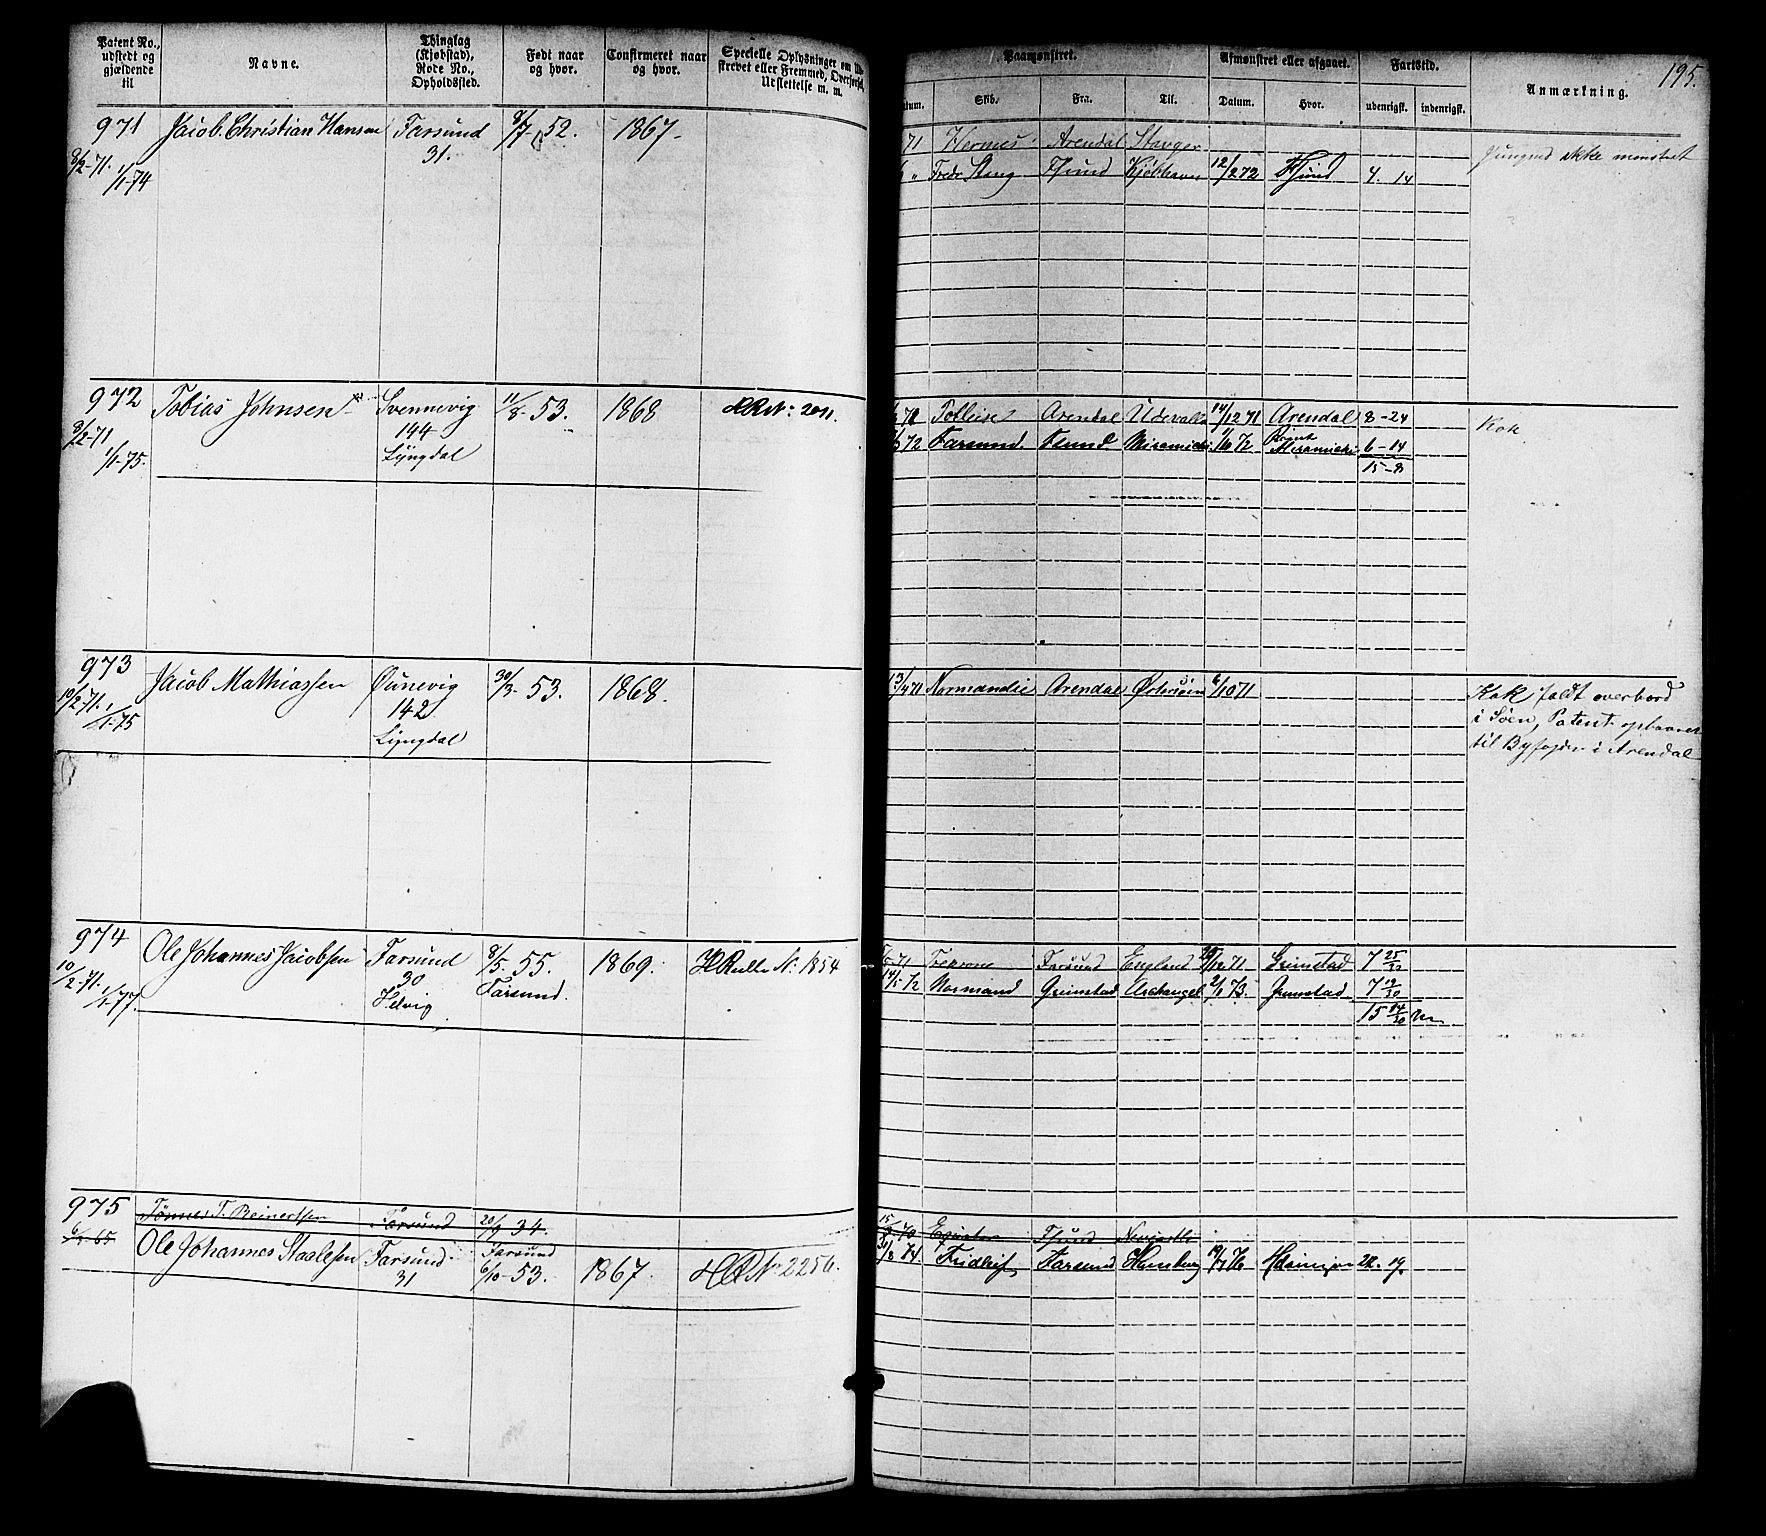 Patent No., udstedt og gjældende til
Navne.
Thinglag (Kjøbstad), Rode No., Opholdssted.
Født naar og hvor.
Confirmeret naar og hvor.
Specielle Oplysninger om
Udslettelse m. m.
971
8/2-71. 1/1-74
Jacob Christian Hansen
Farsund
31.
8/7 52.
1867.
972
8/2-71
1/1-75.
Tobias Johnsen
Svennevig
144
Lyngdal
11/8-53.
1868
HR No: 2011.
973
10/2-71.
1/1-75
Jacob Mathiassen
Øunevig
142
Lyngdal
30/3-53.
1868.
974
10/2-71.
1/1-77.
Ole Johannes Jacobsen
Farsund
30
Helvig
8/5-55.
Farsund.
1869.
HRulle No: 1854
975
6/5-65
Tønnes T. Reinertsen
Farsund
20/9 34.
Farsund
Ole Johannes Staalesen
Farsund
31
6/10-53.
1867.
HR No 2256.
195.
Paamønstret.
Afmønstret eller afgaaet.
Fartstid.
Anmærkning.
Skib.
Fra.
Til.
Datum.
Hvor.
udenrigsk.
indenrigsk.
71 Hermes Arendal Stavger
Jungmd ikke mønstret
Fredr Stang Fsund Kjøbhavn 12/2 72 Fsund 4. 14
71 Arendal Udevalla 14/12 71 Arendal 8-24
Kok
72 Farsund Fsund Miramichi 1/6 72 Miramichi 6-14
15-8
13/4 71 Normandie Arendal Østersøen 6/10 71
Kok faldt overbord
i Søen, Patent
til Byfogden i Arendal
71 Farsund England 71 Grimstad 7 25/30
14/5 72 Normand Grimstad Archangel 2/1 73. Grimstad 7 19/30
15 14/30
15/8 70 Equator Fsund
30/8 74 Fridleif Farsund Hamburg 19/7 76 22. 19.